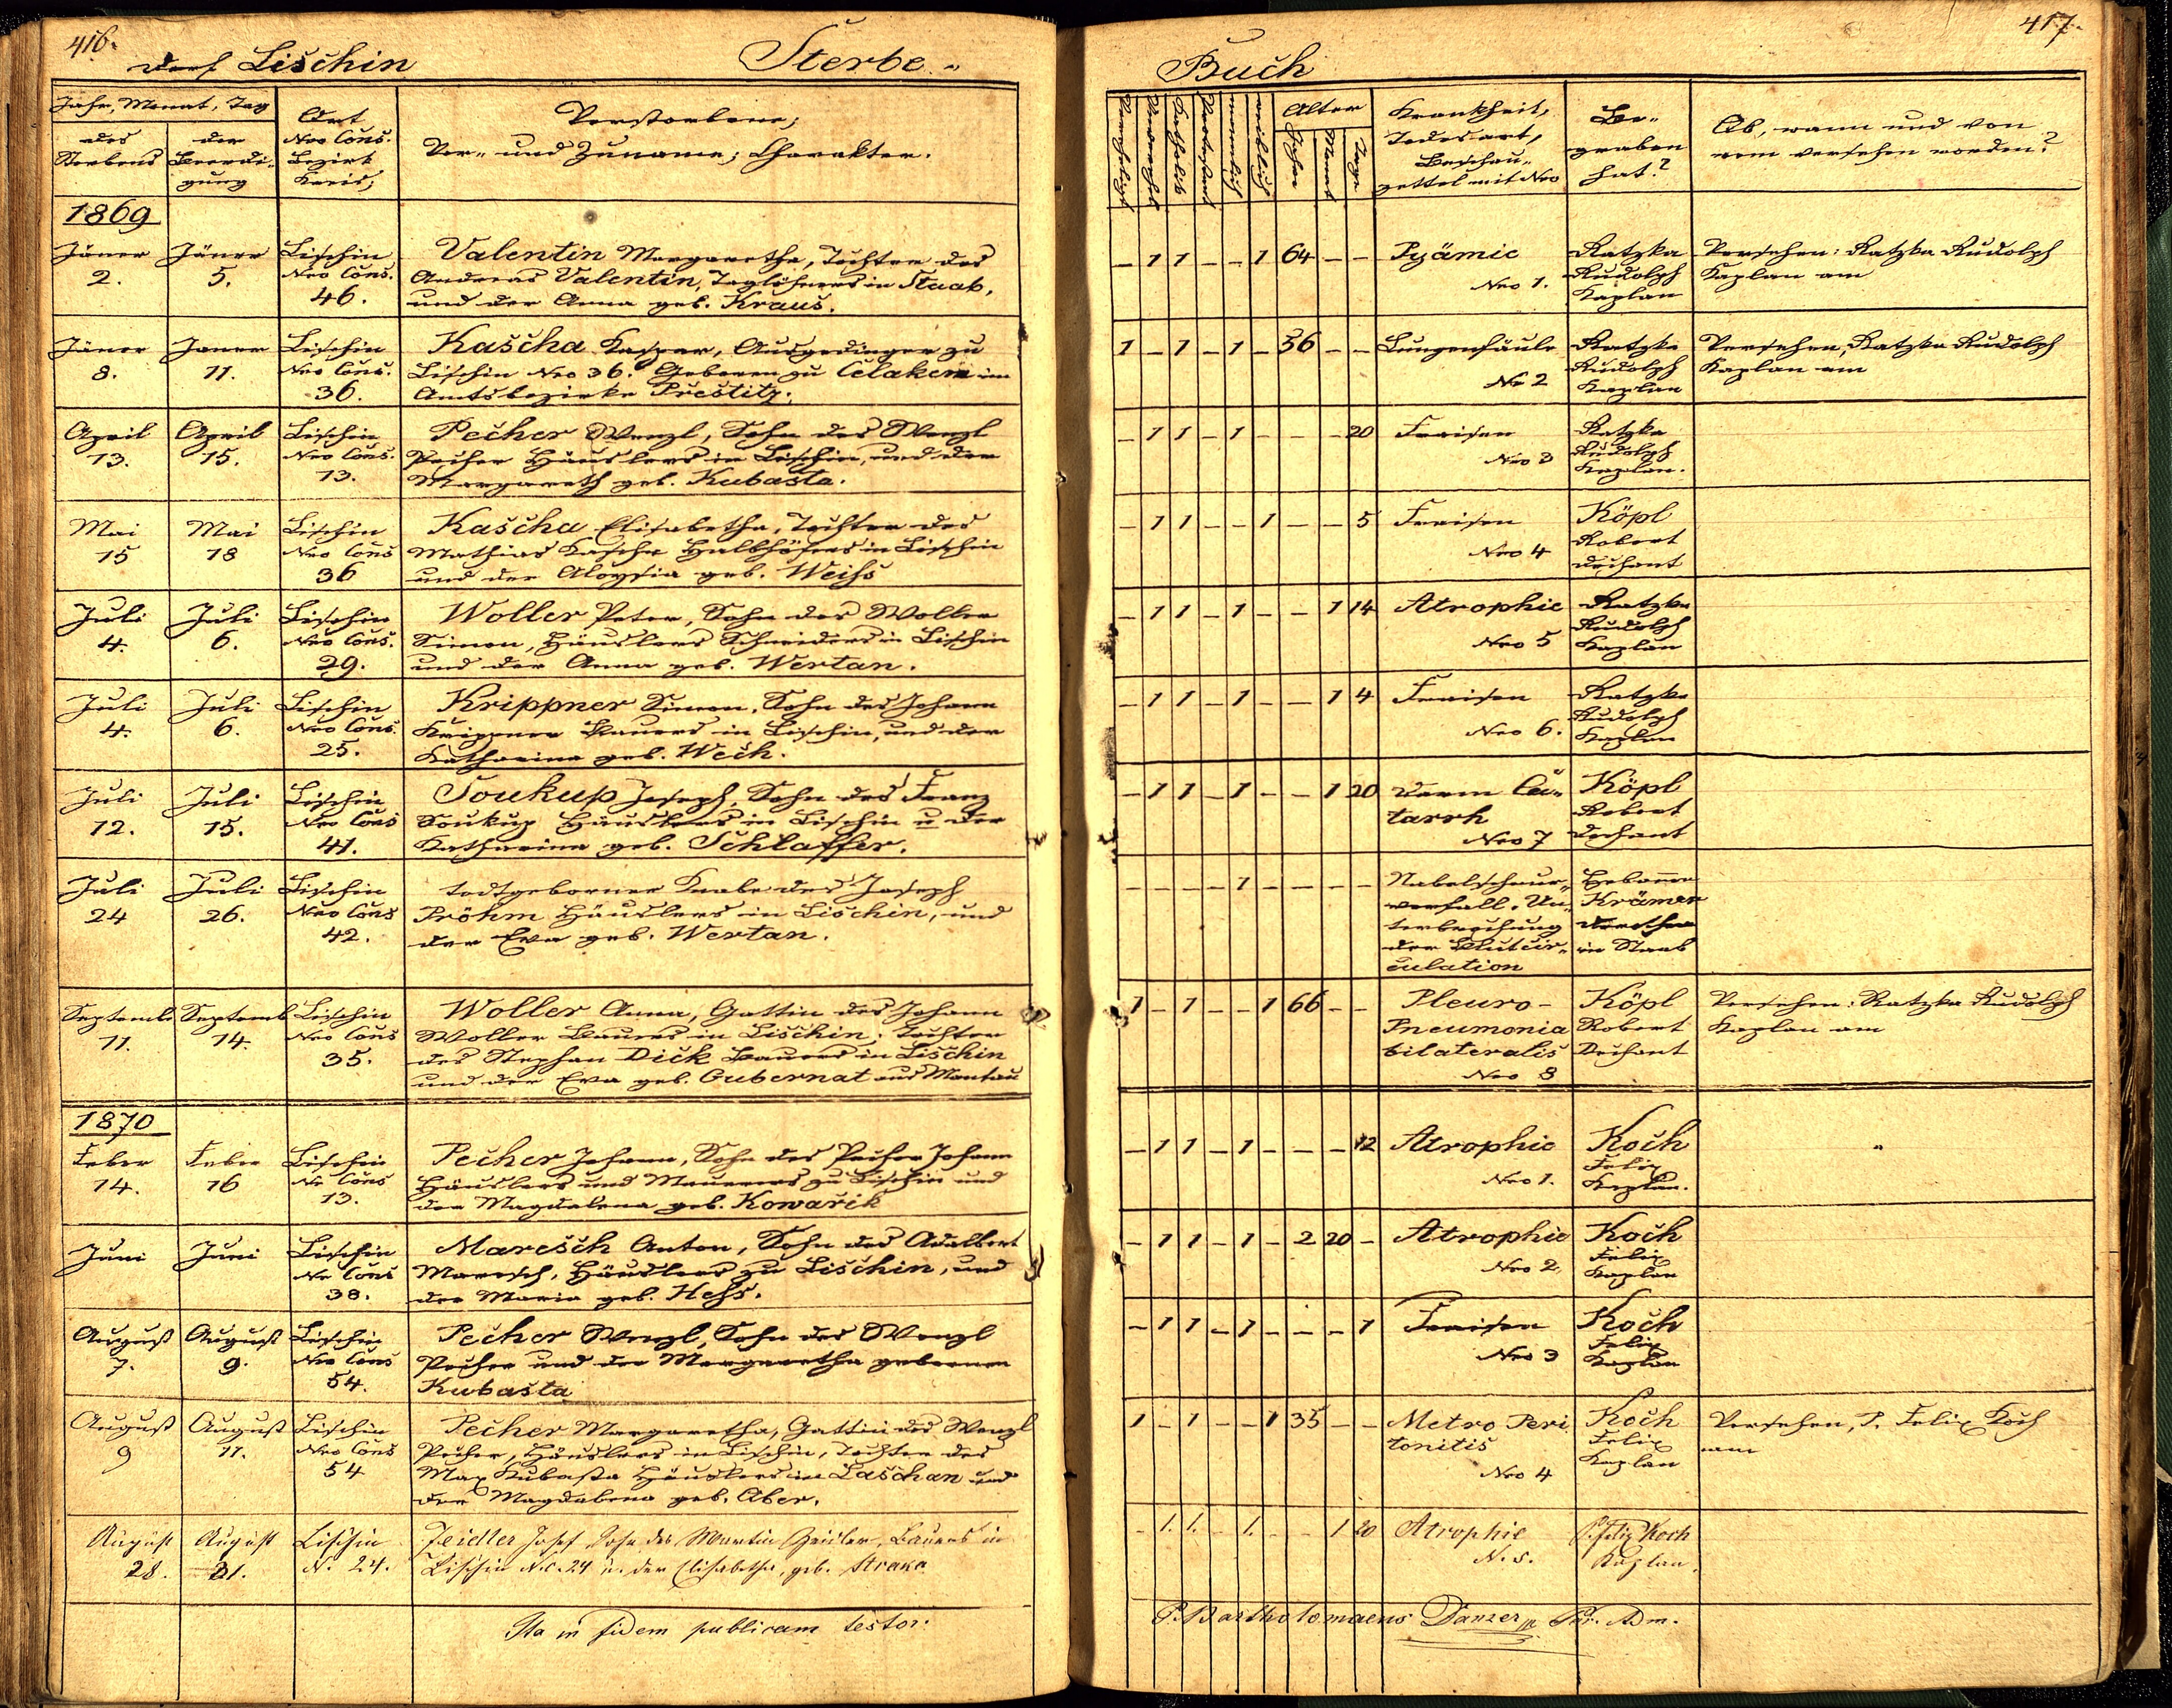 416.
Dorf Lischin
Sterbe-
Jahr, Monat, Tag
des Sterbens
der Beerdi-
gung
Ort
Nro Cons.
Bezirk
Kreis;
Verstorbene;
Vor- und Zuname; Charakter.
1869
Jäner 2.
Jäner 5.
Lischin
Nro Cons.
46.
Valentin Margaretha, Tochter des
Andreas Valentin, Taglöhners in Staab,
und der Anna geb. Kraus.
Jäner 8.
Janer 11.
Lischin
Nro Cons.
36.
Kascha Kaspar, Ausgedinger zu
Lischin Nro 36. Geboren zu Celaken im
Amtsbezirke Prestitz.
April 13.
April 15.
Lischin
Nro Cons.
13.
Pecher Wenzl, Sohn des Wenzl
Pecher Häuslers in Lischin, und der
Margareth geb. Kubasta.
Mai 15
Mai 18
Lischin
Nro Cons
36
Kascha Elisabetha, Tochter des
Mathias Kascha Halbhöfers in Lischin
und der Aloysia geb. Weiss
Juli 4.
Juli 6.
Lischin
Nro Cons.
29.
Woller Peter, Sohn des Woller
Simon, Häuslers Schneiders in Lischin
und der Anna geb. Wertan.
Juli 4.
Juli 6.
Lischin
Nro Cons.
25.
Krippner Simon, Sohn des Johann
Krippner Bauers in Lischin, und der
Katharina geb. Wech.
Juli 12.
Juli 15.
Lischin
Nro Cons
41.
Soukup Joseph, Sohn des Franz
Soukup Häuslers in Lischin u der
Katharina geb. Schlaffer.
Juli 24
Juli 26.
Lischin
Nro Cons
42.
todtgeborner Knabe des Joseph
Pröhm Häuslers in Lischin, und
der Eva geb. Wertan.
Septemb 11.
Septemb 14.
Lischin
Nro Cons
35.
Woller Anna, Gattin des Johann
Woller Bauers in Lischin; Tochter
des Stephan Dick Bauers in Lischin
und der Eva geb. Gubernat aus Mantau
1870
Feber 14.
Feber 16
Lischin
Nr Cons
13.
Pecher Johann, Sohn des Pecher Johann
Häuslers und Maurers zu Lischin und
der Magdalena geb. Kowarik
Juni
Juni
Lischin
Nr Cons
38.
Maresch Anton, Sohn des Adalbert
Maresch, Häuslers zu Lischin, und
der Maria geb. Hess.
August 7.
August 9.
Lischin
Nro Cons
54.
Pecher Wenzl, Sohn des Wenzl
Pecher und der Margaretha gebornen
Kubasta
August 9
August 11.
Lischin
Nro Cons
54
Pecher Margaretha, Gattin des Wenzl
Pecher, Häuslers in Lischin, Tochter des
Max Kubasta Häuslers in Laschan und
der Magdalena geb. Aber.
August 28.
August 31.
Lischin
N. 24.
Zeidler Josef, Sohn des Martin Zeidler, Bauers in
Lischin N.C. 24 u. der Elisabetha, geb. Straka
Ita in fidem publicam testor:
417.
Buch
Alter
Jahre
Monat
Tage
Katholik
männlich
weiblich
Krankheit,
Todesart,
Beschau-
zettel mit Nro
Be-
graben
hat?
Ob, wann und von
wem versehen worden?
- 1 1 - - 1 64 - -
Pyämie
Nro 1.
Ratzka
Rudolph
Kaplan
Versehen: Ratzka Rudolph
Kaplan am
1 - 1 - 1 - 36 - -
Lungenfäule
Nr 2
Ratzka
Rudolph
Kaplan
Versehen, Ratzka Rudolph
Kaplan am
- 1 1 - 1 - - - 20
Fraisen
Nro 3
Ratzka
Rudolph
Kaplan.
- 1 1 - - 1 - - 5
Fraisen
Nro 4
Köpl
Robert
Dechant
- 1 1 - 1 - - 1 14
Atrophie
Nro 5
Ratzka
Rudolph
Kaplan
- 1 1 - 1 - - 1 4
Fraisen
Nro 6.
Ratzka
Rudolph
Kaplan
- 1 1 - 1 - - 1 20
Darm Ca-
tarrh
Nro 7
Köpl
Robert
Dechant
- - - - 1 - - - -
Nabelschnur-
vorfall. Un-
terbrechung
der Blutcir-
culation
Hebamme
Krämer
Dorothea
in Staab
1 - 1 - - 1 66 - -
Pleuro-
Pneumonia
bilateralis
Nro 8
Köpl
Robert
Dechant
Versehen: Ratzka Rudolph
Kaplan am
- 1 1 - 1 - - - 12
Atrophie
Nro 1.
Koch
Felix
Kaplan.
- 1 1 - 1 - 2 20 -
Atrophie
Nro 2
Koch
Felix
Kaplan
- 1 1 - 1 - - - 1
Fraisen
Nro 3
Koch
Felix
Kaplan
1 - 1 - - 1 35 - -
Metro Peri
tonitis
Nro 4
Koch
Felix
Kaplan
Versehen, P. Felix Koch
am
- 1. 1. - 1. - - 1 20
Atrophie
N. 5.
P. Felix Koch
Kaplan.
P. Bartholomaeus Danzer Par. Adm.